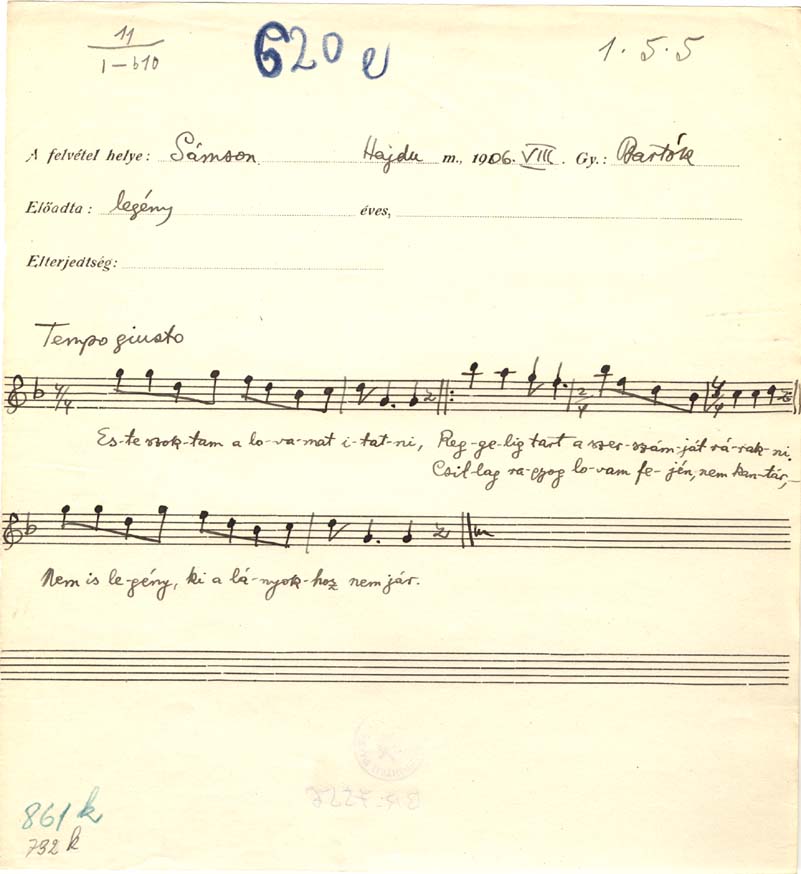 11
I-610
620 e
1.5.5
A felvétel helye: Sámson Hajdu m., 1906. VIII. Gy.: Bartók
Előadta: legény éves,
Elterjedtség:
Tempo giusto
4/4 2/4 4/4
Es-te szok-tam a lo-va-mat i-tat-ni, Reg-ge-lig tart a szer-szám-ját rá-rak-ni.
Csil-lag ra-gyog lo-vam fe-jén, nem kan-tár,
Nem is le-gény, ki a lá-nyok-hoz nem jár.
861 k
732 k